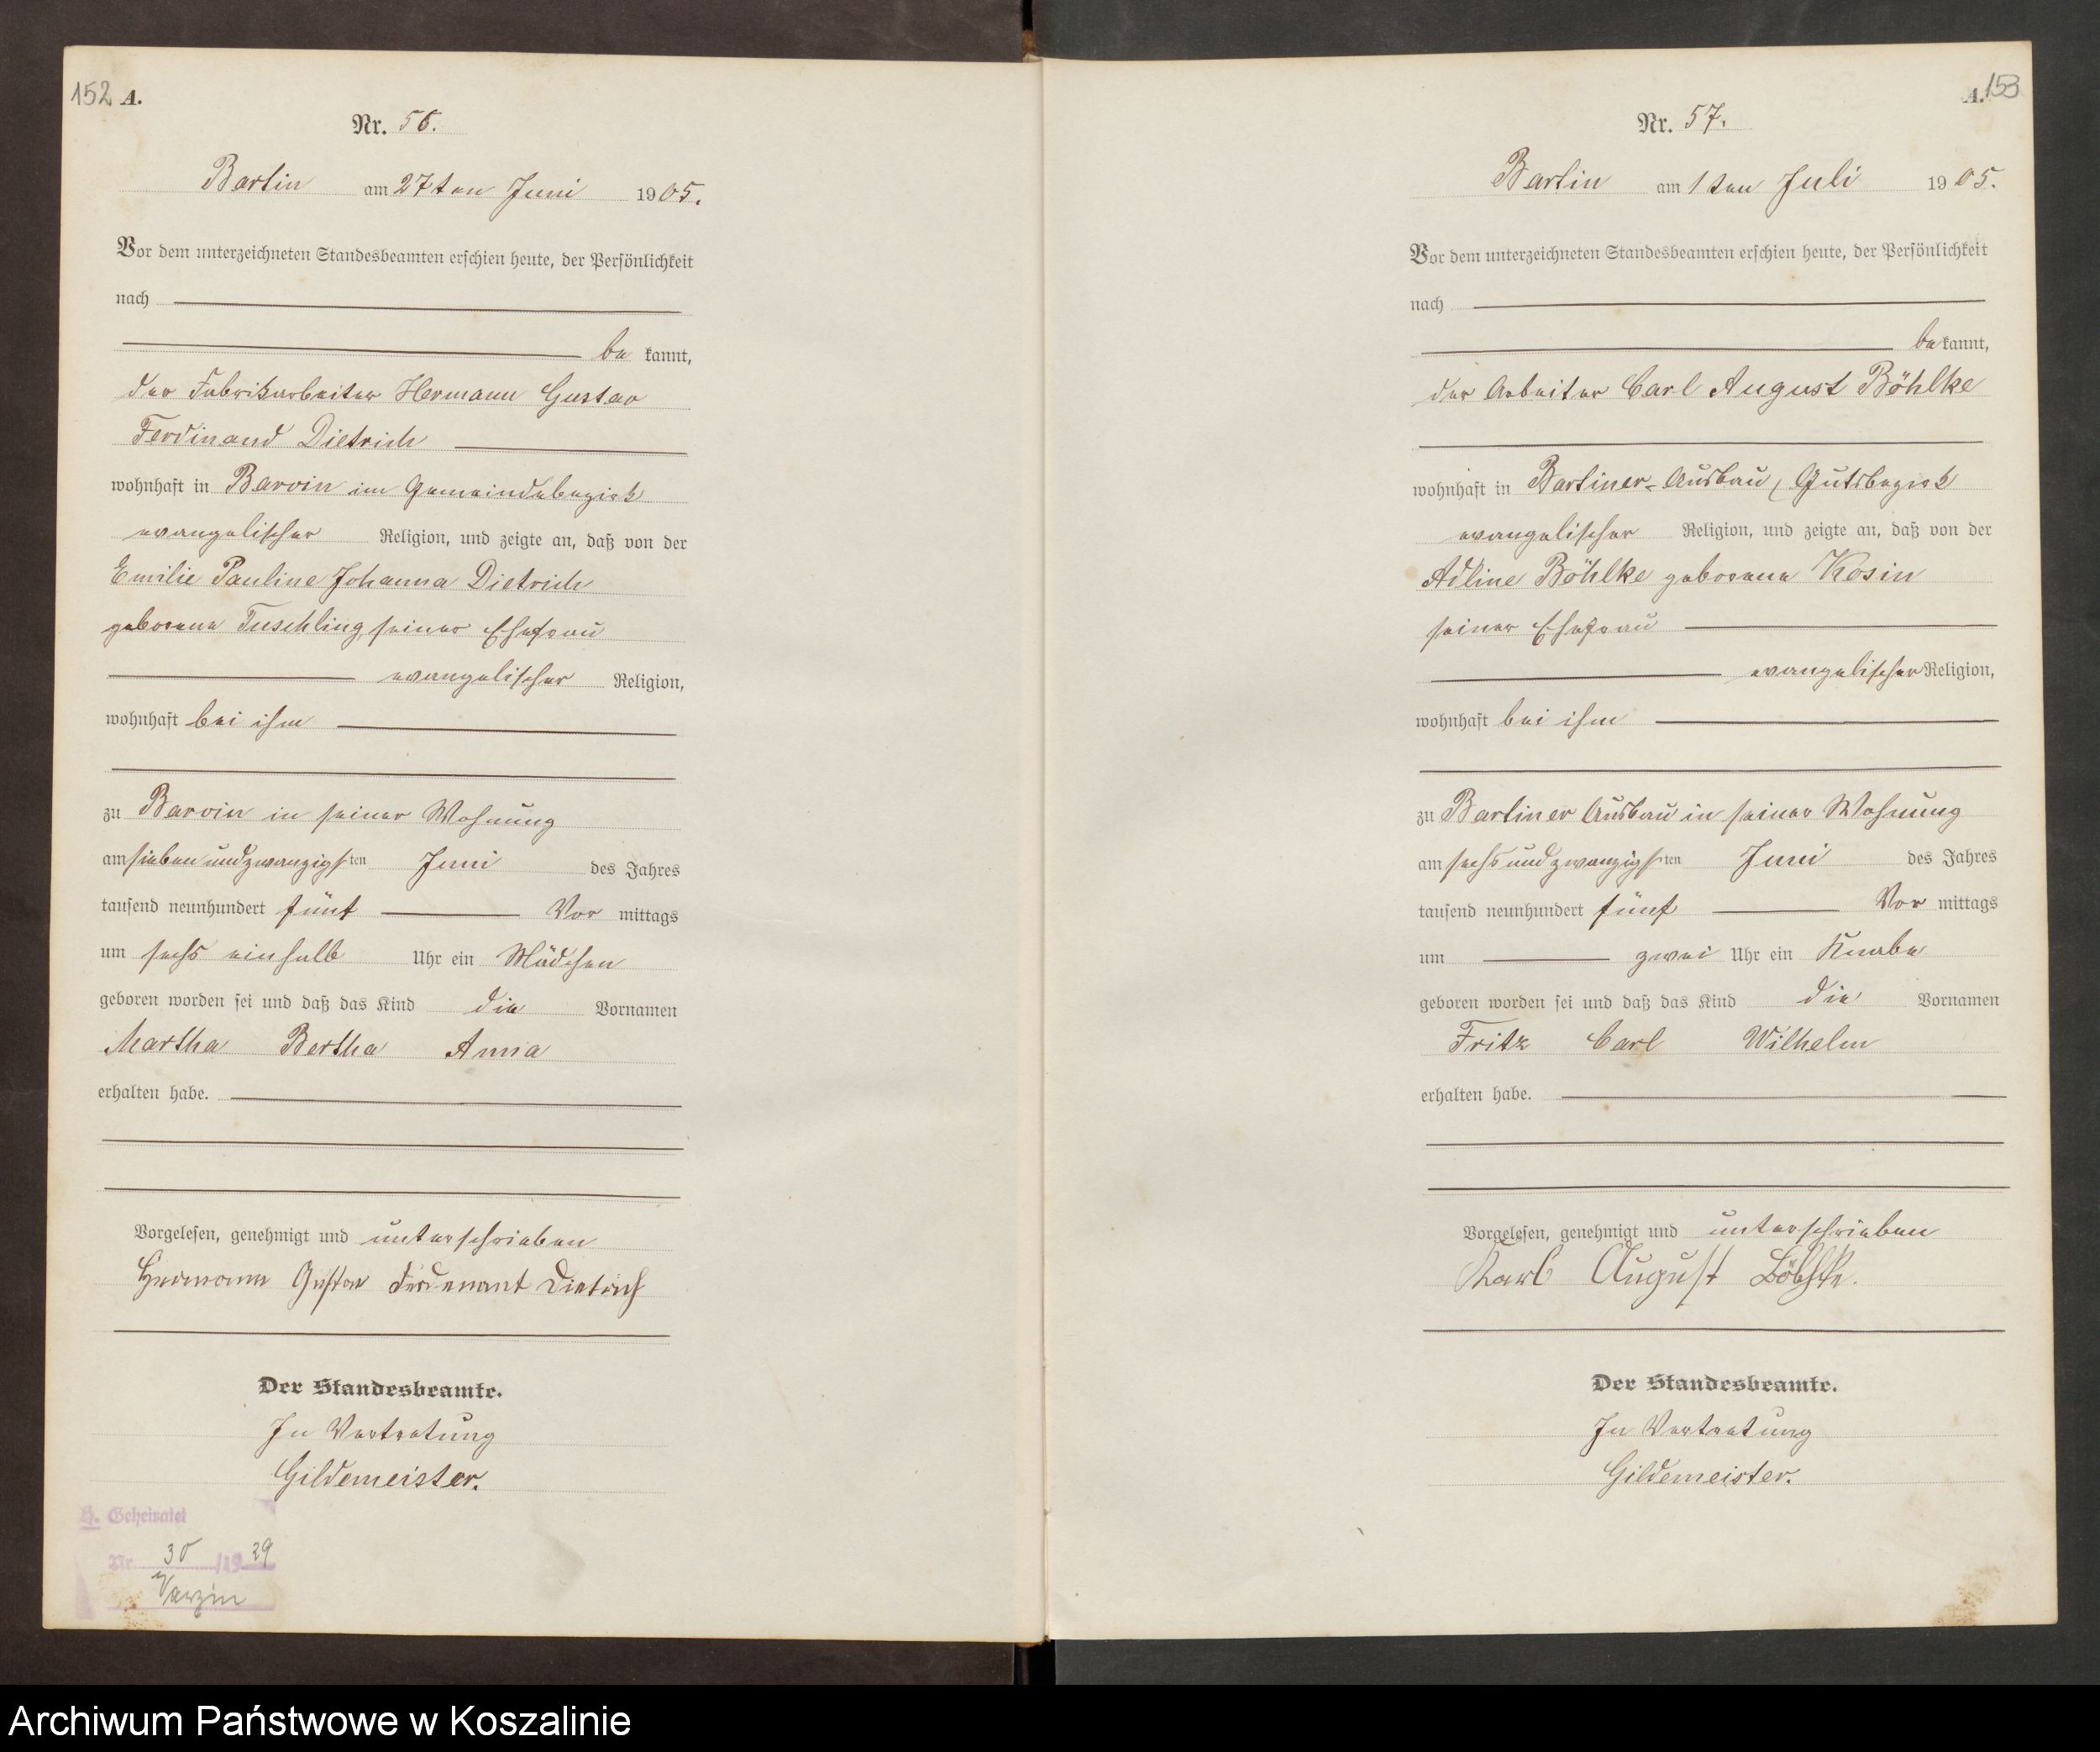 152 A.
Nr. 56.
Bartin am 27ten Juni 1905.
Vor dem unterzeichneten Standesbeamten erschien heute, der Persönlichkeit
nach
be kannt,
der Fabrikarbeiter Hermann Gustav
Ferdinand Dietrich
wohnhaft in Barvin im Gemeindebezirk
evangelischer Religion, und zeigte an, daß von der
Emilie Pauline Johanna Dietrich
geborene Tuschling seiner Ehefrau
evangelischer Religion,
wohnhaft bei ihm
zu Barvin in seiner Wohnung
am sieben und zwanzigsten Juni des Jahres
tausend neunhundert fünf Vor mittags
um sechs einhalb Uhr ein Mädchen
geboren worden sei und daß das Kind die Vornamen
Martha Bertha Anna
erhalten habe.
Vorgelesen, genehmigt und unterschrieben
Hermann Gustav Ferdenant Dietrich
Der Standesbeamte.
In Vertretung
Gildemeister.
H. Geheiratet
Nr. 30 /1929
Varzin
A. 153
Nr. 57.
Bartin am 1ten Juli 1905.
Vor dem unterzeichneten Standesbeamten erschien heute, der Persönlichkeit
nach
be kannt,
der Arbeiter Carl August Böhlke
wohnhaft in Bartiner-Ausbau, Gutsbezirk
evangelischer Religion, und zeigte an, daß von der
Adline Böhlke geborene Kosin
seiner Ehefrau
evangelischer Religion,
wohnhaft bei ihm
zu Bartiner Ausbau in seiner Wohnung
am sechs und zwanzigsten Juni des Jahres
tausend neunhundert fünf Vor mittags
um zwei Uhr ein Knabe
geboren worden sei und daß das Kind die Vornamen
Fritz Carl Wilhelm
erhalten habe.
Vorgelesen, genehmigt und unterschrieben
Karl August Böhlke.
Der Standesbeamte.
In Vertretung
Gildemeister.
Archiwum Państwowe w Koszalinie